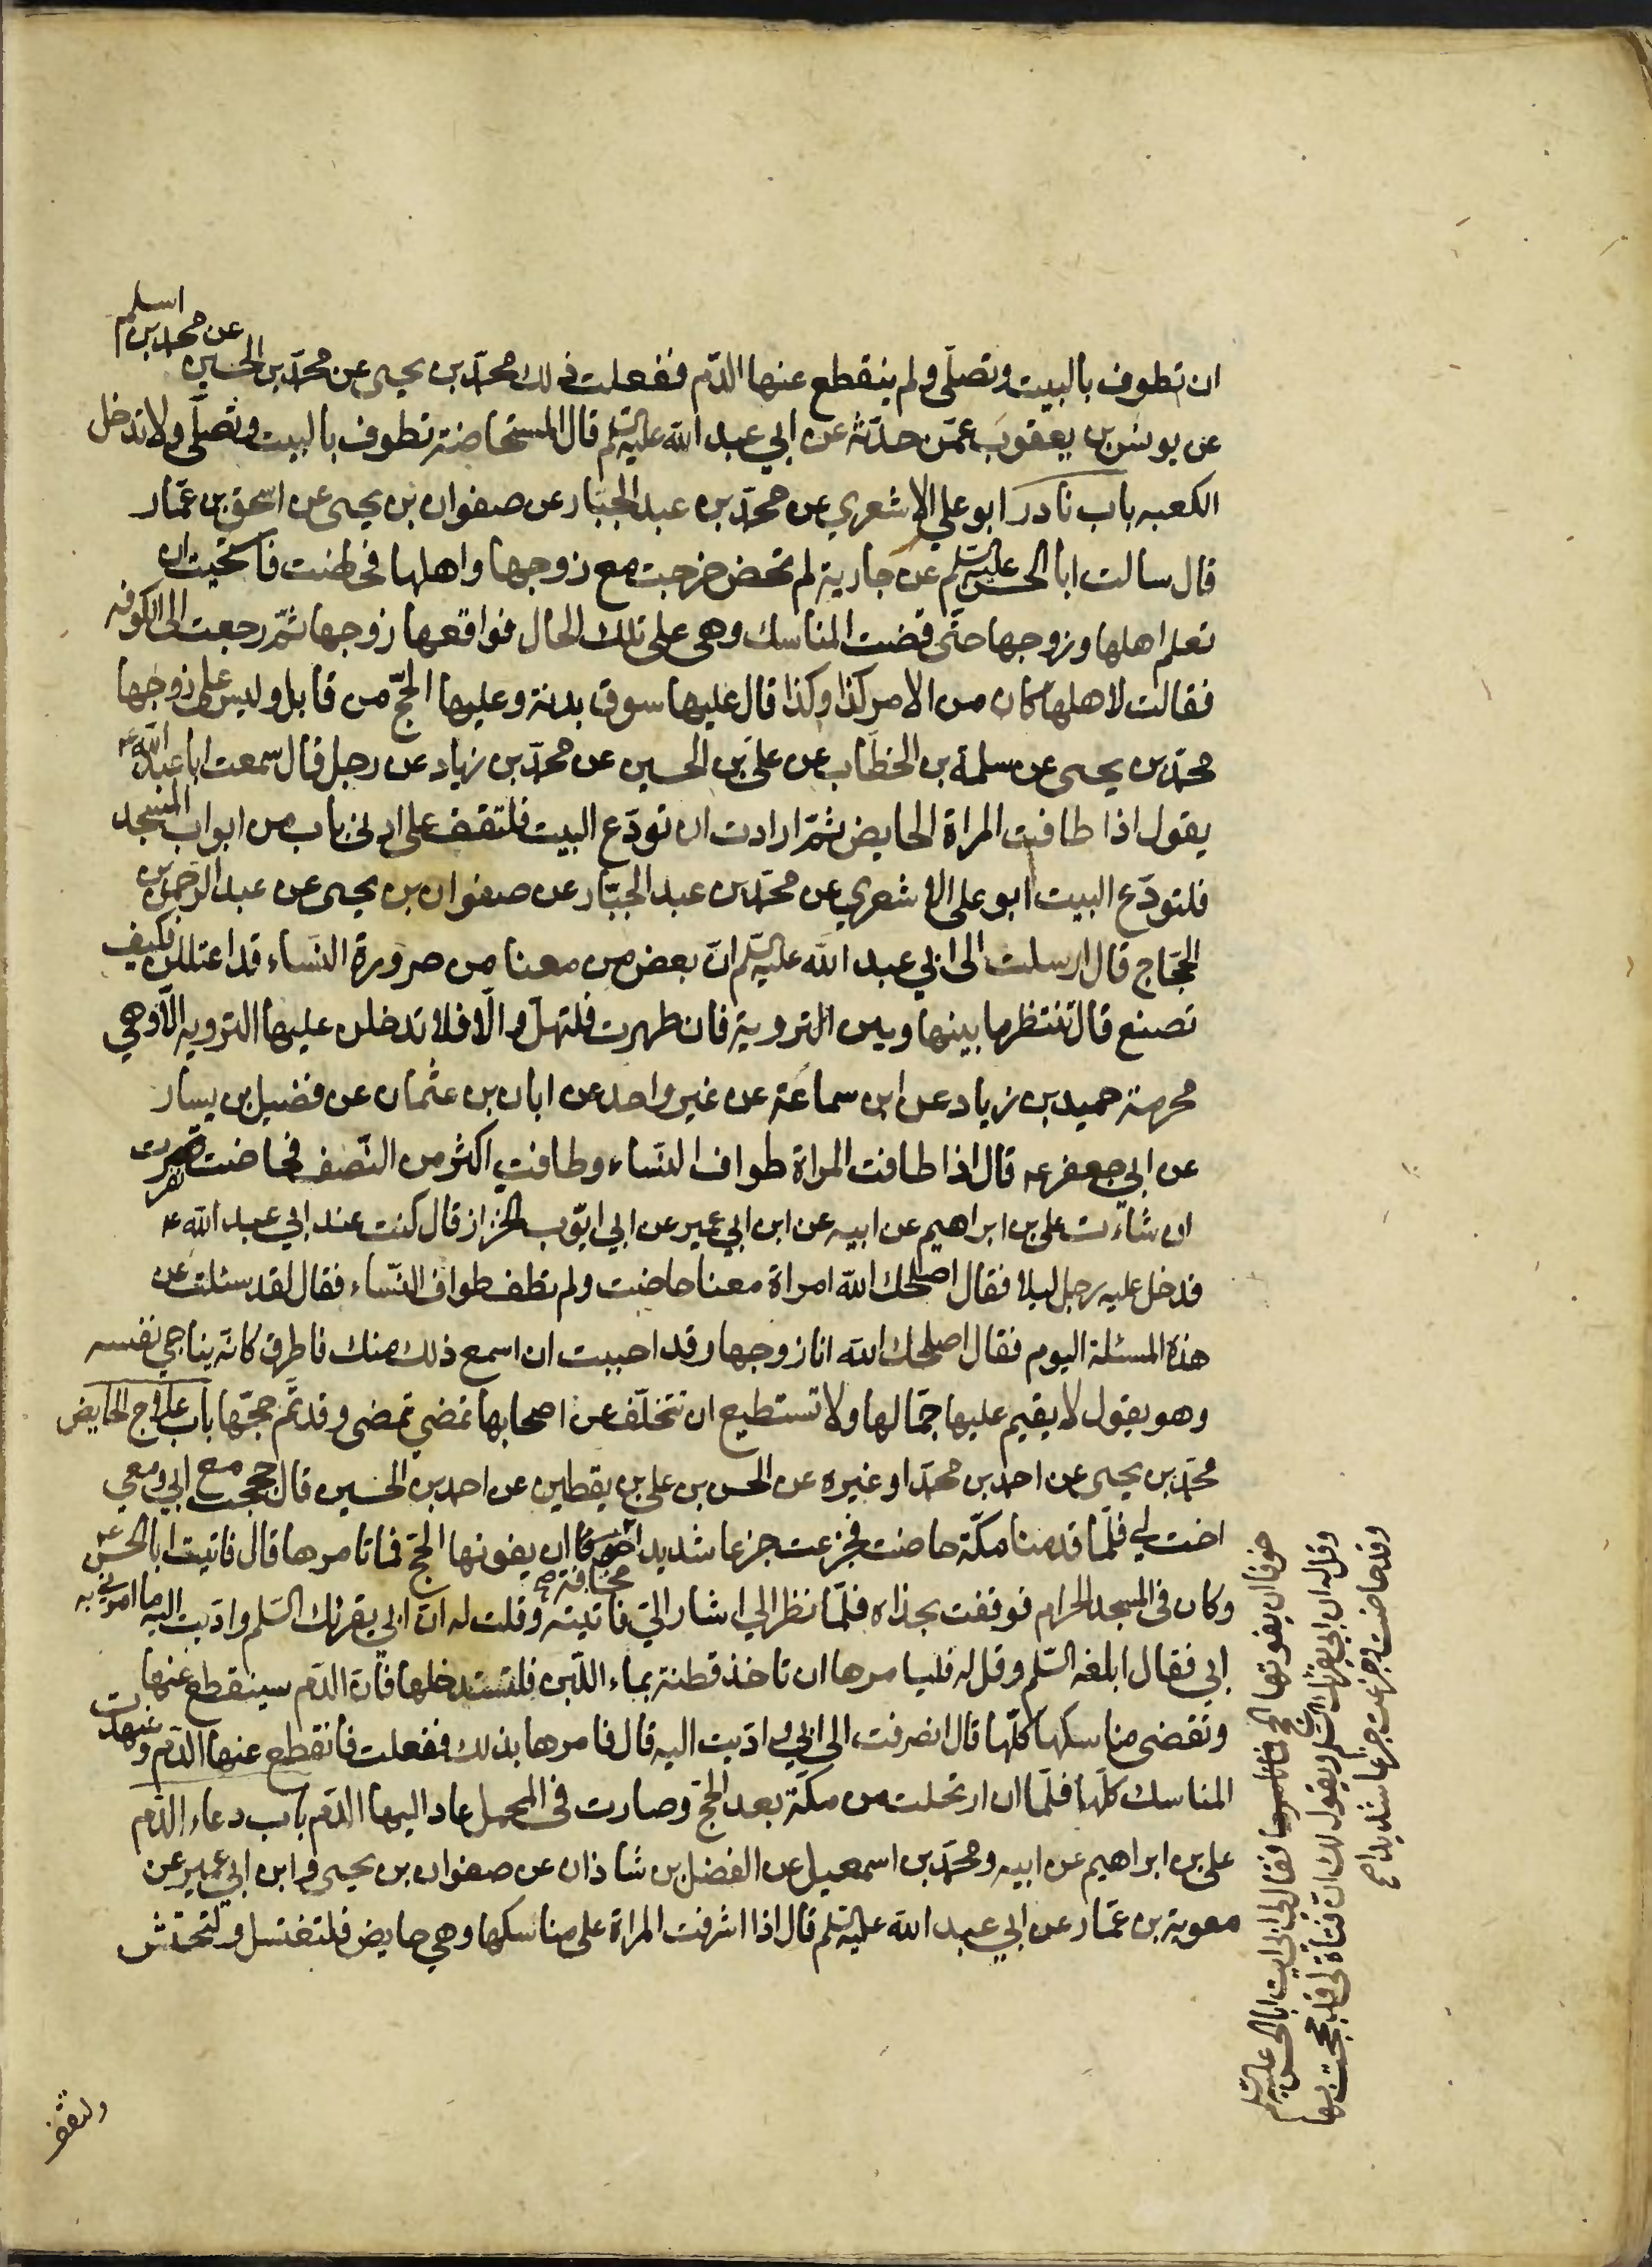 ان تطوف بالبيت وتصلّى ولم ينقطع عنها الدّم ففعلت ذلك محمّد بن يحيى عن محمّد بن الحسين عن محمد بن اسلم
عن يونس بن يعقوب عمّن حدّثه عن ابي عبد الله عليه السّلم قال المستحاضة تطوف بالبيت وتصلّى ولا تدخل
الكعبه باب نادر ابو علي الاشعري عن محمّد بن عبد الجبّار عن صفوان بن يحيى عن اسحق بن عمّار
قال سالت ابا الحسن عليه السّلم عن جارية لم تحض خرجت مع زوجها واهلها فحاضت فاستحيت ان
تعلم اهلها وزوجها حتّى قضت المناسك وهي على تلك الحال فواقعها زوجها ثمّ رجعت الى الكوفه
فقالت لاهلها كان من الامر كذا وكذا قال عليها سوق بدنة وعليها الحجّ من قابل وليس على زوجها
محمّد بن يحيى عن سلمة بن الخطّاب عن على بن الحسين عن محمّد بن زياد عن رجل قال سمعت ابا عبد الله ع
يقول اذا طافت المراة الحايض ثمّ ارادت ان تودّع البيت فلتقف على ادنى باب من ابواب المسجد
فلتودّع البيت ابو على الاشعري عن محمّد بن عبد الجبّار عن صفوان بن يحيى عن عبد الرّحمن بن
الحجّاج قال ارسلت الى ابي عبد الله عليه السّلم انّ بعض من معنا من صرورة النّساء قد اعتللن فكيف
تصنع قال تنتظر ما بينها وبين التروية فان طهرت فلتهلّ والّا فلا تدخلن عليها الترويه الّا وهي
محرمة حميد بن زياد عن ابن سماعة عن غير واحد عن ابان بن عثمان عن فضيل بن يسار
عن ابي جعفر ع قال اذا طافت المراة طواف النّساء وطافت اكثر من النّصف فحاضت نفرت
ان شاءت على بن ابراهيم عن ابيه عن ابن ابي عمير عن ابي ايّوب الخزاز قال كنت عند ابي عبد الله ع
فدخل عليه رجل ليلا فقال اصلحك الله امراة معنا حاضت ولم تطف طواف النّساء فقال لقد سئلت عن
هذه المسئلة اليوم فقال اصلحك الله انا زوجها وقد احببت ان اسمع ذلك منك فاطرق كانّه يناجي نفسه
وهو يقول لا يقيم عليها جمّالها ولا تستطيع ان تتخلّف عن اصحابها تمضي تمضى وقد تمّ حجّها باب علاج الحايض
محمّد بن يحيى عن احمد بن محمّد او غيره عن الحسن بن على بن يقطين عن احمد بن الحسين قال حججت مع ابي ومعي
اخت لي فلمّا قدمنا مكّة حاضت فجزعت جزعا شديدا خوفا ان يفوتها الحجّ فما تامرها قال فاتيت ابا الحسن ع
مخافة
وكان فى المسجد الحرام فوقفت بحذاه فلمّا نظر الي اشار الىّ فاتيته وقلت له انّ ابي يقرئك السّلم وادّيت اليه ما امرني به
ابي فقال ابلغه السّلم وقل له فليامرها ان تاخذ قطنة بماء اللّبن فلتستدخلها فانّ الدّم سينقطع عنها
وتقضى مناسكها كلّها قال انصرفت الى ابي وادّيت اليه قال فامرها بذلك ففعلت فانقطع عنها الدّم وشهدت
المناسك كلّها فلمّا ان ارتحلت من مكّة بعد الحجّ وصارت فى المحمل عاد اليها الدّم باب دعاء الدّم
على بن ابراهيم عن ابيه ومحمّد بن اسمعيل عن الفضل بن شاذان عن صفوان بن يحيى وابن ابي عمير عن
معوية بن عمّار عن ابي عبد الله عليه السّلم قال اذا اشرفت المراة على مناسكها وهي حايض فلتغتسل ولتحتش
خوفا ان يفوتها الحج فقال لي ابي ايت ابا الحسن عليه السّلم
وقل له ان ابي يقرئك السّلم ويقول لك انّ فتاة لي قد حججت بها
وقد حاضت وجزعت جزعا شديدا
ولتقف